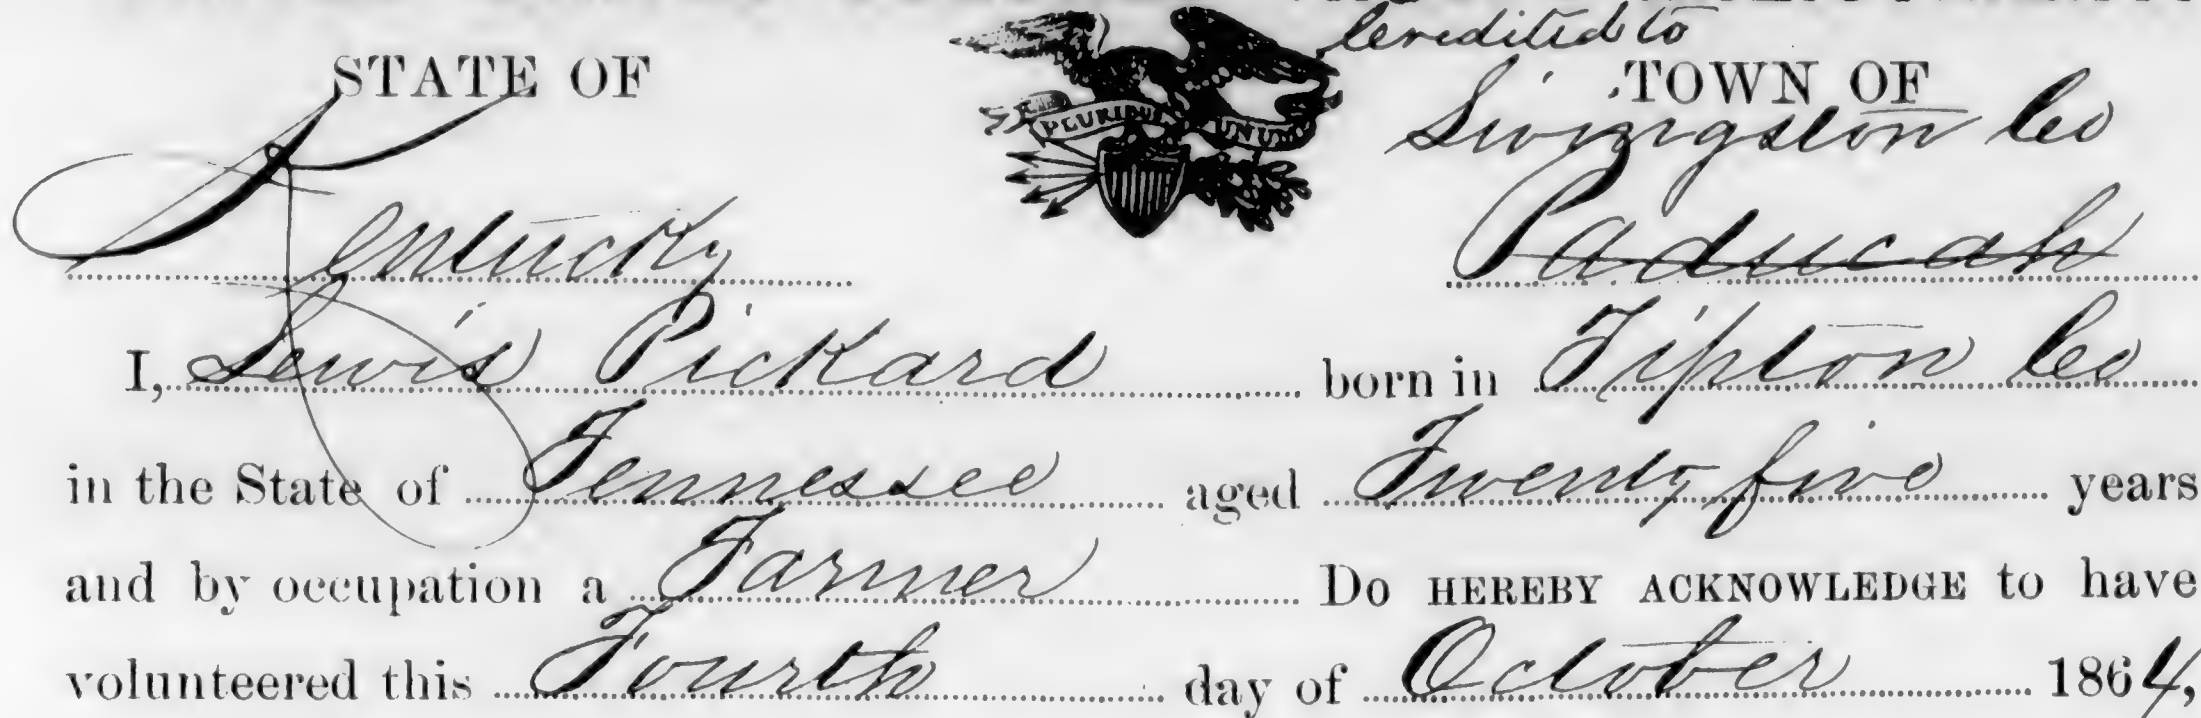 Credited to
STATE OF TOWN OF
Livingston Co
Kentucky Paducah
PLURIBUS UNUM
I, Lewis Pickard born in Tipton Co
in the State of Tennessee aged Twenty five years
and by occupation a Farmer Do HEREBY ACKNOWLEDGE to have
volunteered this Fourth day of October 1864,